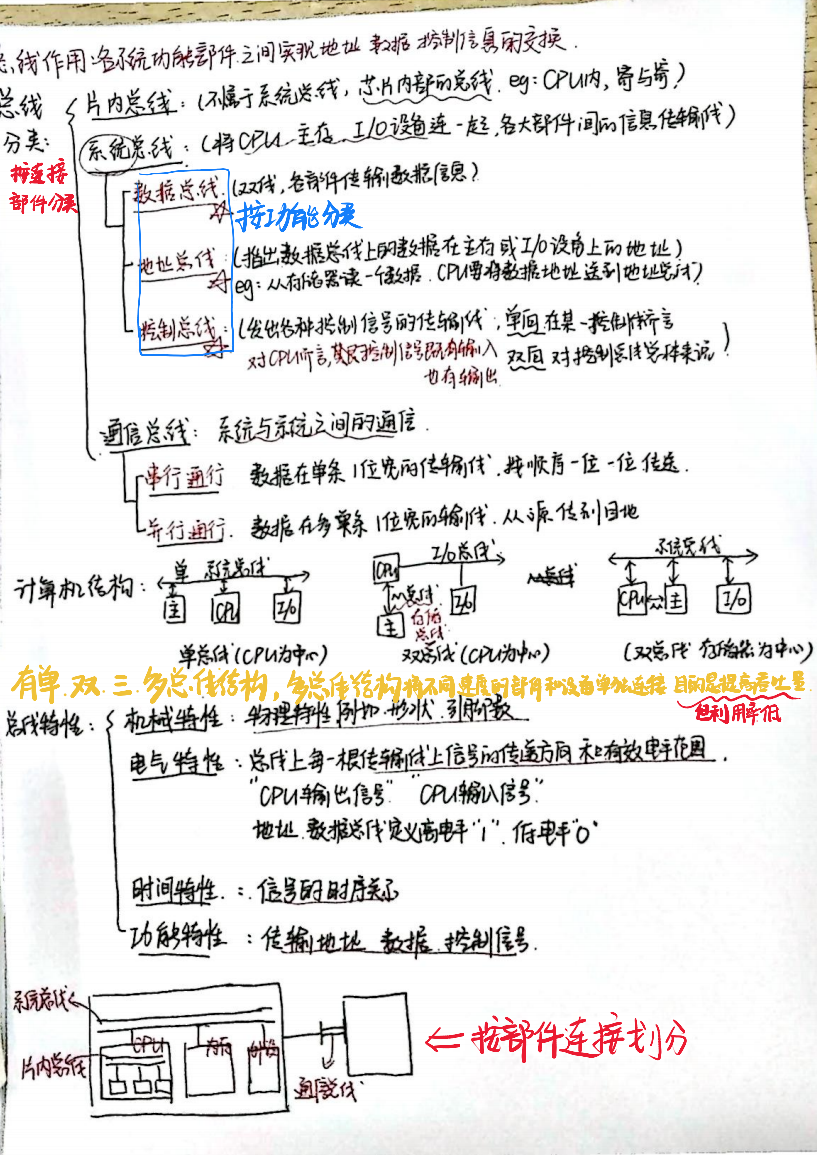 总线作用:各系统功能部件之间实现地址 数据 控制信息的交换.
总线
分类:
按连接
部件分类
片内总线:(不属于系统总线,芯片内部的总线. eg:CPU内,寄与寄)
系统总线:(将CPU、主存、I/O设备连一起,各大部件间的信息传输线)
数据总线 (双线,各部件传输数据信息)
按功能分类
地址总线:(指出数据总线上的数据在主存或I/O设备上的地址)
eg:从存储器读一个数据.CPU要将数据地址送到地址总线)
控制总线:(发出各种控制信号的传输线,单向 在某一控制线而言
对CPU而言,其控制信号既有输入
也有输出.
双向 对控制总线总体来说)
通信总线:系统与系统之间的通信.
串行通行 数据在单条1位宽的传输线.按顺序一位一位传送.
并行通行. 数据在多条1位宽的输线.从源传到目地
计算机结构:
单 系统总线
主 CPU I/O
单总线(CPU为中心)
I/O总线
CPU
M总线
存储
总线
主 I/O
双总线(CPU为中心)
系统总线
CPU 主 I/O
(双总线 存储器为中心)
有单.双.三.多总线结构,多总线结构将不同速度的部件和设备单独连接 目的是提高吞吐量.
但利用率低
总线特性:
机械特性:物理特性 例如.形状.引脚数
电气特性:总线上每一根传输线上信号的传送方向 和有效电平范围.
"CPU输出信号" "CPU输入信号"
地址.数据总线定义高电平"1".低电平"0"
时间特性.:信号的时序关系
功能特性:传输地址 数据 控制信号.
系统总线
CPU 内存 外设
片内总线
通信线
⇐ 按部件连接划分